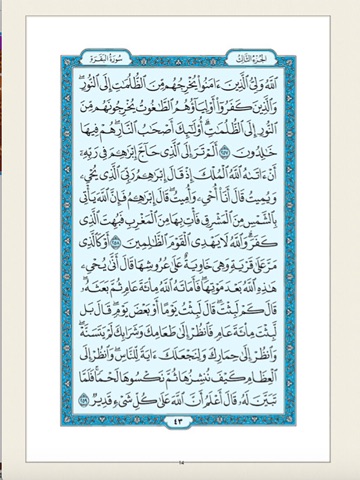 الجزء الثالث سورة البقرة
ٱللَّهُ وَلِيُّ ٱلَّذِينَ ءَامَنُوا۟ يُخْرِجُهُم مِّنَ ٱلظُّلُمَـٰتِ إِلَى ٱلنُّورِ ۖ
وَٱلَّذِينَ كَفَرُوٓا۟ أَوْلِيَآؤُهُمُ ٱلطَّـٰغُوتُ يُخْرِجُونَهُم مِّنَ
ٱلنُّورِ إِلَى ٱلظُّلُمَـٰتِ ۗ أُو۟لَـٰٓئِكَ أَصْحَـٰبُ ٱلنَّارِ ۖ هُمْ فِيهَا
خَـٰلِدُونَ ٢٥٧ أَلَمْ تَرَ إِلَى ٱلَّذِى حَآجَّ إِبْرَٰهِـۧمَ فِى رَبِّهِۦٓ
أَنْ ءَاتَىٰهُ ٱللَّهُ ٱلْمُلْكَ إِذْ قَالَ إِبْرَٰهِـۧمُ رَبِّىَ ٱلَّذِى يُحْىِۦ
وَيُمِيتُ قَالَ أَنَا۠ أُحْىِۦ وَأُمِيتُ ۖ قَالَ إِبْرَٰهِـۧمُ فَإِنَّ ٱللَّهَ يَأْتِى
بِٱلشَّمْسِ مِنَ ٱلْمَشْرِقِ فَأْتِ بِهَا مِنَ ٱلْمَغْرِبِ فَبُهِتَ ٱلَّذِى
كَفَرَ ۗ وَٱللَّهُ لَا يَهْدِى ٱلْقَوْمَ ٱلظَّـٰلِمِينَ ٢٥٨ أَوْ كَٱلَّذِى
مَرَّ عَلَىٰ قَرْيَةٍ وَهِىَ خَاوِيَةٌ عَلَىٰ عُرُوشِهَا قَالَ أَنَّىٰ يُحْىِۦ
هَـٰذِهِ ٱللَّهُ بَعْدَ مَوْتِهَا ۖ فَأَمَاتَهُ ٱللَّهُ مِا۟ئَةَ عَامٍ ثُمَّ بَعَثَهُۥ ۖ
قَالَ كَمْ لَبِثْتَ ۖ قَالَ لَبِثْتُ يَوْمًا أَوْ بَعْضَ يَوْمٍ ۖ قَالَ بَل
لَّبِثْتَ مِا۟ئَةَ عَامٍ فَٱنظُرْ إِلَىٰ طَعَامِكَ وَشَرَابِكَ لَمْ يَتَسَنَّهْ ۖ
وَٱنظُرْ إِلَىٰ حِمَارِكَ وَلِنَجْعَلَكَ ءَايَةً لِّلنَّاسِ ۖ وَٱنظُرْ إِلَى
ٱلْعِظَامِ كَيْفَ نُنشِزُهَا ثُمَّ نَكْسُوهَا لَحْمًا ۚ فَلَمَّا
تَبَيَّنَ لَهُۥ قَالَ أَعْلَمُ أَنَّ ٱللَّهَ عَلَىٰ كُلِّ شَىْءٍ قَدِيرٌ ٢٥٩
٤٣